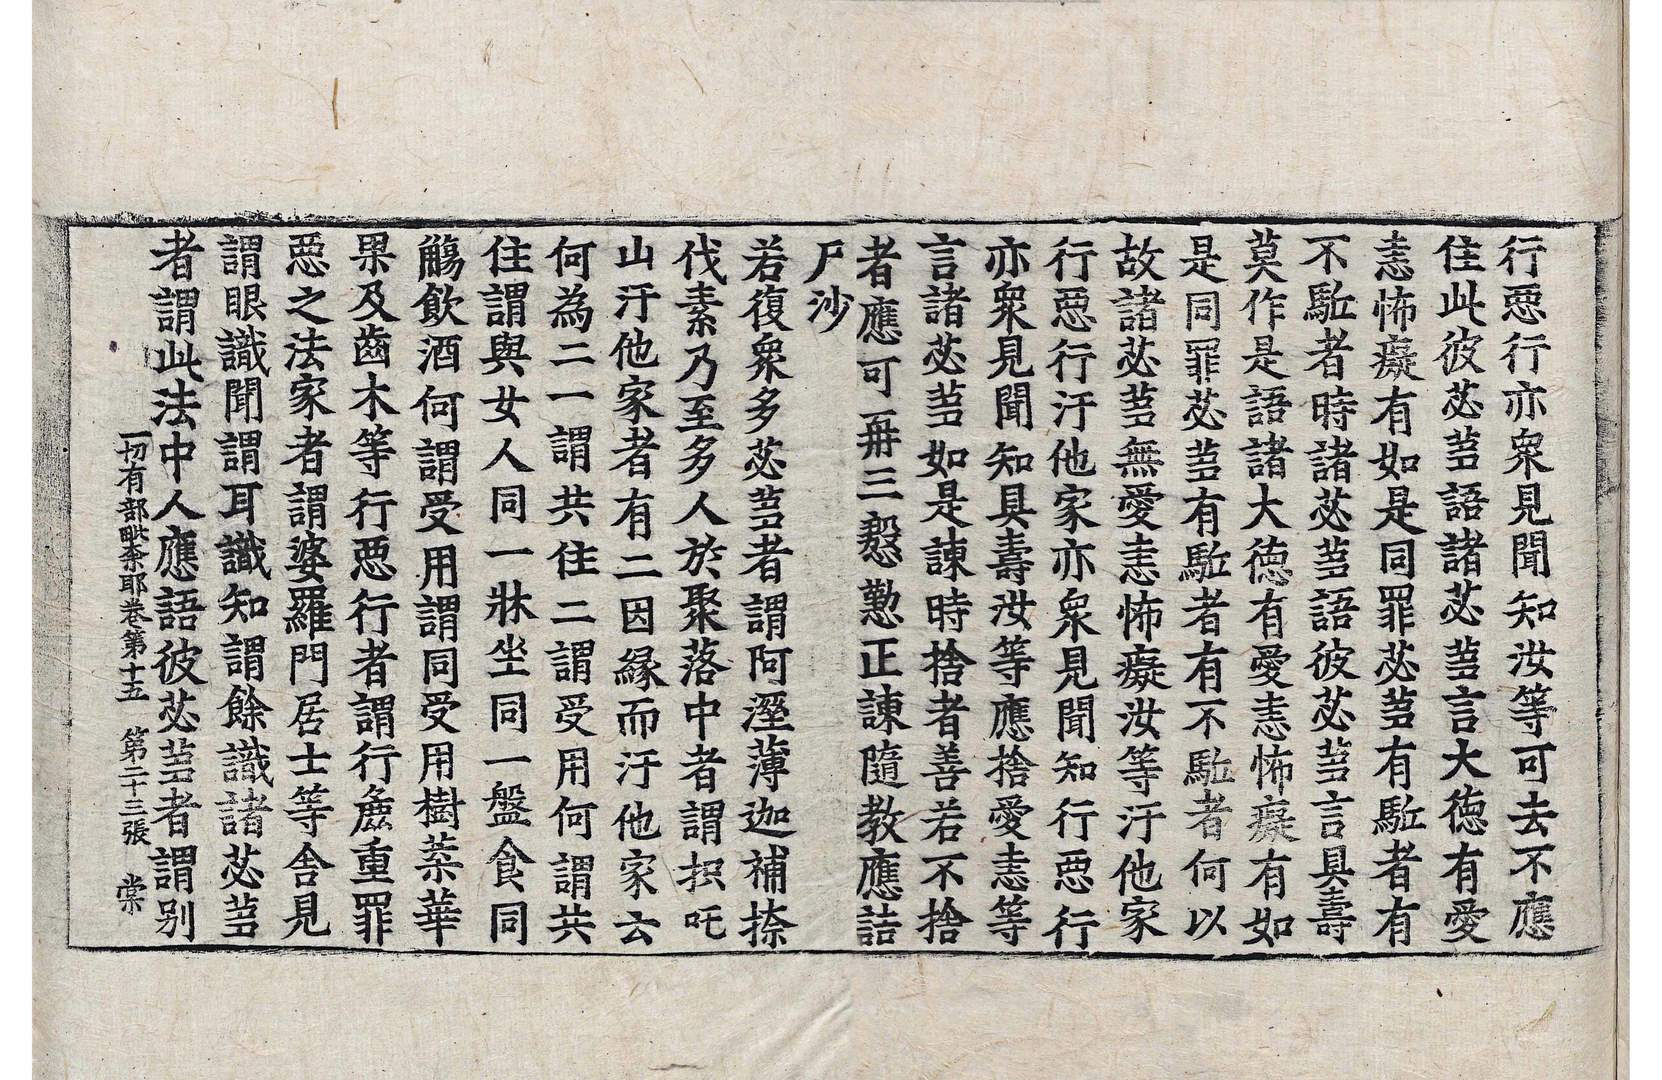 行惡行亦衆見聞知汝等可去不應
住此彼苾蒭語諸苾蒭言大徳有愛
恚怖癡有如是同罪苾蒭有駈者有
不駈者時諸苾蒭語彼苾蒭言具壽
莫作是語諸大徳有愛恚怖癡有如
是同罪苾蒭有駈者有不駈者何以
故諸苾蒭無愛恚怖癡汝等汙他家
行惡行汙他家亦衆見聞知行惡行
亦衆見聞知具壽汝等應捨愛恚等
言諸苾蒭如是諫時捨者善若不捨
者應可再三慇懃正諫隨教應詰
尸沙
若復衆多苾蒭者謂阿溼薄迦補捺
伐素乃至多人於聚落中者謂枳吒
山汙他家者有二因緣而汙他家云
何為二一謂共住二謂受用何謂共
住謂與女人同一牀坐同一盤食同
觴飲酒何謂受用謂同受用樹葉華
果及齒木等行惡行者謂行麁重罪
惡之法家者謂婆羅門居士等舍見
謂眼識聞謂耳識知謂餘識諸苾蒭
者謂此法中人應語彼苾蒭者謂別
一切有部毗柰耶卷第十五 第二十三張 棠